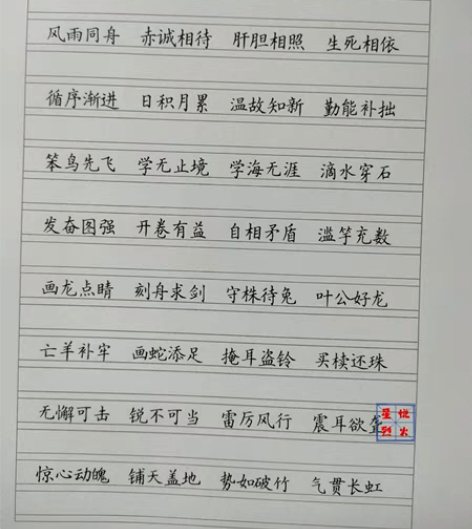 风雨同舟 赤诚相待 肝胆相照 生死相依
循序渐进 日积月累 温故知新 勤能补拙
笨鸟先飞 学无止境 学海无涯 滴水穿石
发奋图强 开卷有益 自相矛盾 滥竽充数
画龙点睛 刻舟求剑 守株待兔 叶公好龙
亡羊补牢 画蛇添足 掩耳盗铃 买椟还珠
无懈可击 锐不可当 雷厉风行 震耳欲
惊心动魄 铺天盖地 势如破竹 气贯长虹